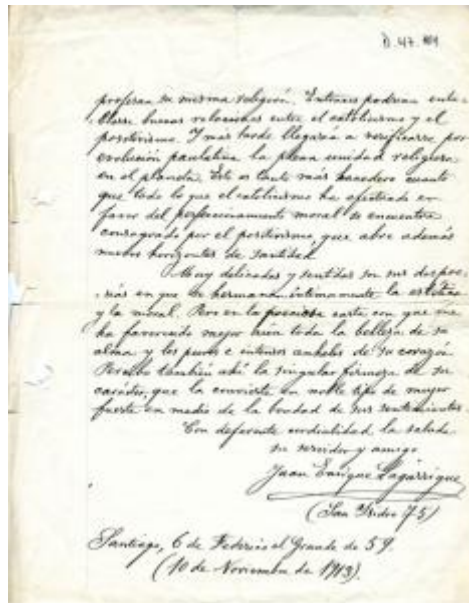 D. 47.
profesan su misma religión. Entonces podrían enta-
blarse buenas relaciones entre el catolicismo y el
positivismo. I más tarde llegará a verificarse por
evolución paulatina la plena unidad religiosa
en el planeta. Esto es tanto más hacedero cuanto
que todo lo que el catolicismo ha efectuado en
favor del perfeccionamiento moral se encuentra
consagrado por el positivismo, que abre además
nuevos horizontes de santidad.
Muy delicadas y sentidas son sus
en que se hermanan íntimamente la estética
y la moral. Pero en la preciosa carta con que me
ha favorecido mejor toda la belleza de su
alma y los puros e intensos anhelos de su corazón.
Percibo también ahí la singular firmeza de su
carácter, que la convierte en noble tipo de mujer
fuerte en medio de la bondad de sus sentimientos.
Con deferente cordialidad la saluda
su servidor y amigo
Juan Enrique Lagarrigue
(San Isidro 75)
Santiago, 6 de Federico el Grande de 59.
(10 de Noviembre de 1913).